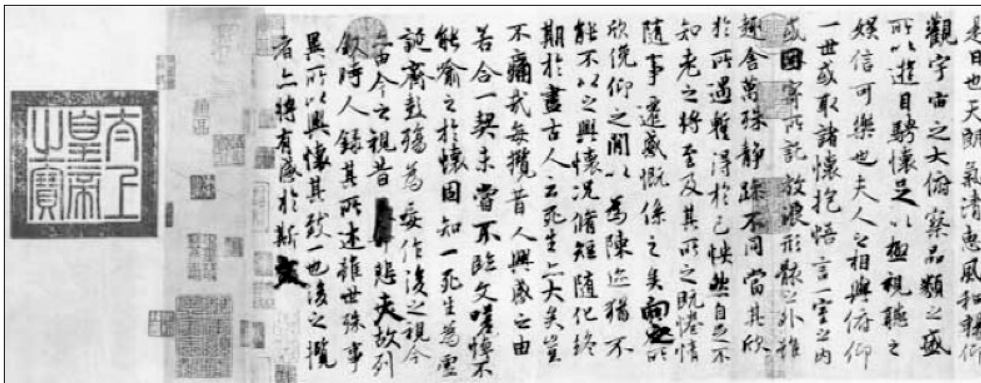 是日也天朗氣清惠風和暢仰
觀宇宙之大俯察品類之盛
所以遊目騁懷足以極視聽之
娛信可樂也夫人之相與俯仰
一世或取諸懷抱悟言一室之內
或因寄所託放浪形骸之外雖
趣舍萬殊靜躁不同當其欣
於所遇蹔得於己怏然自足不
知老之將至及其所之既惓情
隨事遷感慨係之矣向之所
欣俛仰之閒以為陳迹猶不
能不以之興懷況脩短隨化終
期於盡古人云死生亦大矣豈
不痛哉每攬昔人興感之由
若合一契未嘗不臨文嗟悼不
能喻之於懷固知一死生為虛
誕齊彭殤為妄作後之視今
亦由今之視昔悲夫故列
敘時人錄其所述雖世殊事
異所以興懷其致一也後之攬
者亦將有感於斯文
太上
皇帝
之寶